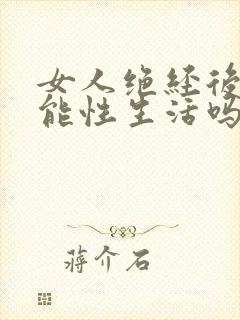 女人绝経後
能性生活吗
蒋介石